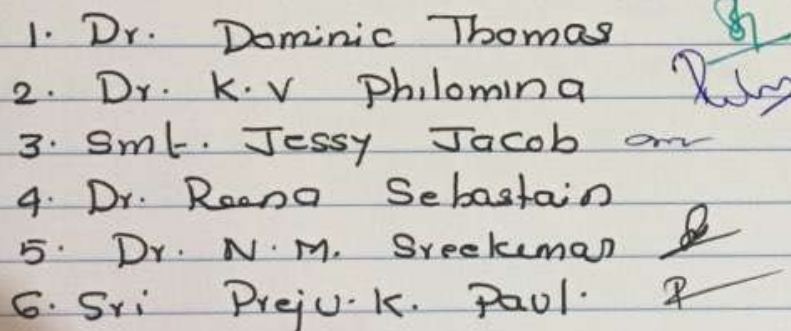 1. Dr. Dominic Thomas
2. Dr. K.V Philomina
3. Smt. Jessy Jacob
4. Dr. Reena Sebastain
5. Dr. N.M. Sreekumar
6. Sri Preju.K. Paul.